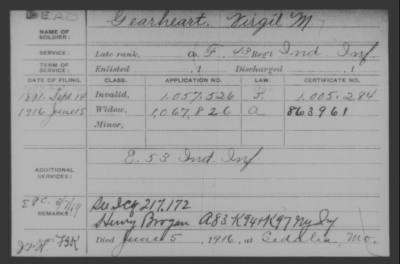 DEAD
Gearheart, Virgil M.
NAME OF SOLDIER:
SERVICE: Late rank, a F, 43 Regt Ind Inf
TERM OF SERVICE: Enlisted , 1 Discharged , 1
DATE OF FILING. CLASS. APPLICATION NO. LAW. CERTIFICATE NO.
1891 Sept 14 Invalid, 1,057,526 J. 1,005,284
1916 June 15 Widow, 1,067,826 a 863961
Minor,
ADDITIONAL SERVICES: E. 53 Ind. Inf
REMARKS See 217,172
Henry Brogan A83 K94 & K97 Ny Iy
Died June 5, 1916, at Sedalia, Mo.